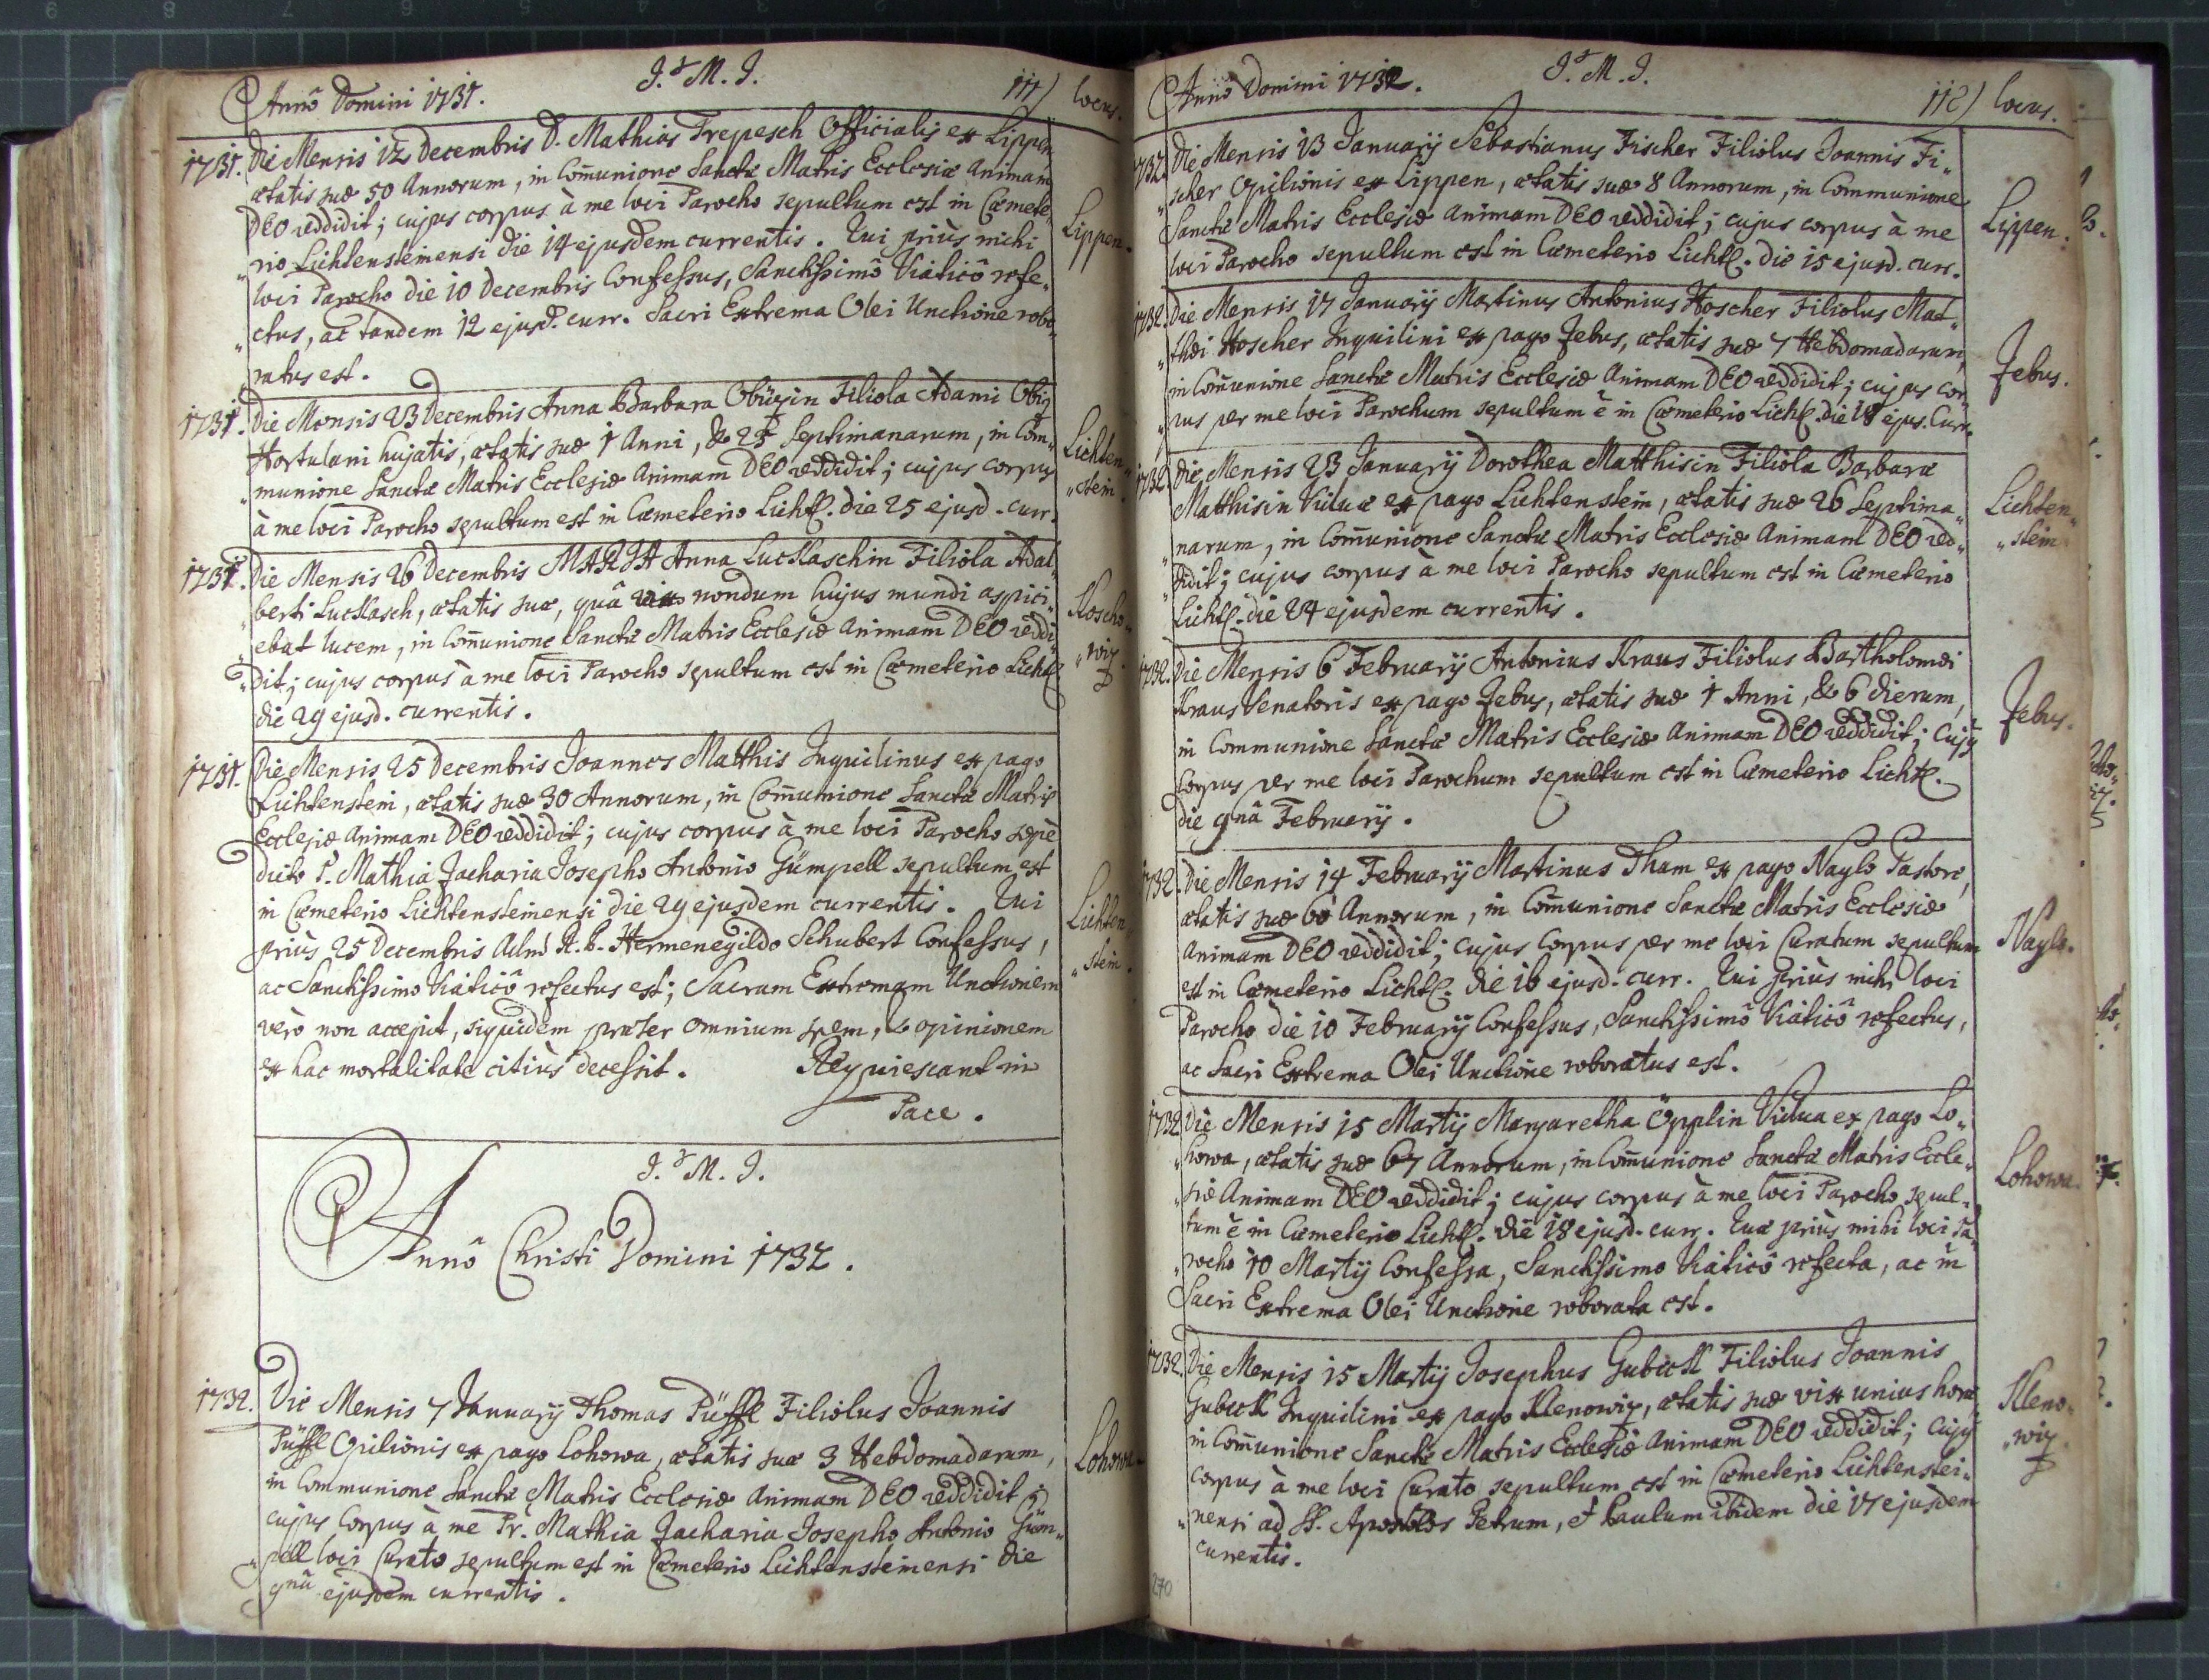 Annô Domini 1731. J.M.J. 111) Locus.
1731. Die Mensis 12 Decembris D. Mathias Trepesch Officialis ex Lippen
ætatis suæ 50 Annorum, in Com̄unione Sanctæ Matris Ecclesiæ Animam
DEO reddidit; cujus corpus à me loci Parocho sepultum est in Cœmete„
„rio Lichtensteinensi die 14 ejusdem currentis. Qui priùs mihi Lippen.
loci Parocho die 10 Decembris Confessus, Sanctissimô Viaticô refe„
„ctus, ac tandem 12 ejusd. curr. Sacri Extrema Olei Unctione robo„
„ratus est.
1731. Die Mensis 23 Decembris Anna Barbara Filiola Adami
Hortulani hujatis, ætatis suæ 1 Anni, & Septimanarum, in Com„ Lichten„
„munione Sanctæ Matris Ecclesiæ Animam DEO reddidit; cujus corpus „stein.
à me loci Parocho sepultum est in Cœmeterio Licht. die 25 ejusd. curr.
1731. Die Mensis 26 Decembris MARIA Anna Luckaschin Filiola Adal„
„berti Luckasch, ætatis suæ, quâ nondum hujus mundi aspici„ Koscho„
„ebat lucem, in Com̄unione Sanctæ Matris Ecclesiæ Animam DEO reddi„ „wiz.
„dit; cujus corpus à me loci Parocho sepultum est in Cœmeterio Licht.
die 29 ejusd. currentis.
1731. Die Mensis 25 Decembris Joannes Matthis Inquilinus ex pago
Lichtenstein, ætatis suæ 30 Annorum, in Com̄unione Sanctæ Matris
Ecclesiæ Animam DEO reddidit; cujus corpus à me loci Parocho sæpè
dicto P. Mathia Zacharia Josepho Antonio Gümpell sepultum est
in Cœmeterio Lichtensteinensi die 29 ejusdem currentis. Qui Lichten„
priùs 25 Decembris Adm̄ R. P. Hermenegildo Schubert Confessus, „stein.
ac Sanctissimo Viaticô refectus est; Sacram Extremam Unctionem
verò non accepit, siquidem præter omnium spem, & opinionem
ex hac mortalitate citiùs decessit. Requiescant in
Pace.
J.M.J.
Annô Christi Domini 1732.
1732. Die Mensis 7 January Thomas Püffl Filiolus Joannis
Püffl Opilionis ex pago Lohowa, ætatis suæ 3 Hebdomadarum, Lohowa.
in Communione Sanctæ Matris Ecclesiæ Animam DEO reddidit;
cujus Corpus à me Pr. Mathia Zacharia Josepho Antonio Güm„
„pell loci Curato sepultum est in Cœmeterio Lichtensteinensi die
9nâ ejusdem currentis.
Annô Domini 1732. J.M.J. 112) Locus.
1732. Die Mensis 13 January Sebastianus Fischer Filiolus Joannis Fi„
„scher Opilionis ex Lippen, ætatis suæ 8 Annorum, in Communione
Sanctæ Matris Ecclesiæ Animam DEO reddidit; cujus corpus à me Lippen.
loci Parocho sepultum est in Cœmeterio Licht. die 15 ejusd. curr.
1732. Die Mensis 17 January Martinus Antonius Hoscher Filiolus Mat„
„thæi Hoscher Inquilini ex pago Jebus, ætatis suæ 7 Hebdomadarum, Jebus.
in Com̄unione Sanctæ Matris Ecclesiæ Animam DEO reddidit; cujus cor„
„pus per me loci Parochum sepultum ē in Cœmeterio Licht. die 18 ejus. Curr.
1732 Die Mensis 23 January Dorothea Matthisin Filiola Barbaræ
Matthisin Viduæ ex pago Lichtenstein, ætatis suæ 26 Septima„ Lichten„
„narum, in Com̄unione Sanctæ Matris Ecclesiæ Animam DEO red„ „stein
„didit; cujus corpus à me loci Parocho sepultum est in Cœmeterio
Licht. die 24 ejusdem currentis.
1732. Die Mensis 6 February Antonius Kraus Filiolus Bartholomæi
Kraus Venatoris ex pago Jebus, ætatis suæ 1 Anni, & 6 dierum, Jebus.
in Communione Sanctæ Matris Ecclesiæ Animam DEO reddidit; cujus
Corpus per me loci Parochum sepultum est in Cœmeterio Licht.
die 9nâ February.
1732. Die Mensis 14 February Martinus Tham ex pago Naylo Pastore,
ætatis suæ 60 Annorum, in Com̄unione Sanctæ Matris Ecclesiæ
Animam DEO reddidit; cujus Corpus per me loci Curatum sepultum Naylo.
est in Cœmeterio Licht. die 16 ejusd. curr. Qui priùs mihi loci
Parocho die 10 February Confessus, Sanctissimô Viaticô refectus,
ac Sacri Extrema Olei Unctione roboratus est.
1732 Die Mensis 15 Martij Margaretha Öpplin Vidua ex pago Lo„
„howa, ætatis suæ 67 Annorum, in Com̄unione Sanctæ Matris Eccle„ Lohowa.
„siæ Animam DEO reddidit; cujus corpus à me loci Parocho sepul„
„tum ē in Cœmeterio Licht. die 18 ejusd. curr. Quæ priùs mihi loci Pa„
„rocho 10 Martij Confessa, Sanctissimo Viaticô refecta, ac in
Sacri Extrema Olei Unctione roborata est.
1732. Die Mensis 15 Martij Josephus Gubick Filiolus Joannis
Gubick Inquilini ex pago Klenowiz, ætatis suæ vix unius horæ Kleno„
in Com̄unione Sanctæ Matris Ecclesiæ Animam DEO reddidit; cujus „wiz
corpus à me loci Curato sepultum est in Cœmeterio Lichtenstei„
„nensi ad SS. Apostolos Petrum, et Paulum ibidem die 17 ejusdem
currentis.
270